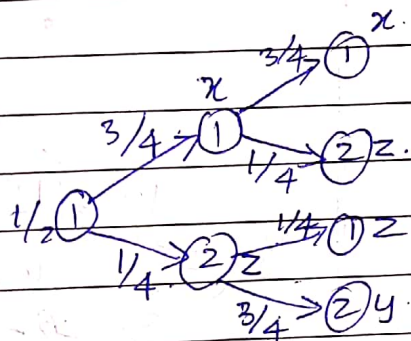 x
3/4 1
x
3/4 1
1/4 2 z.
1/2 1
1/4 1 z
1/4. 2 z
3/4 2 y.